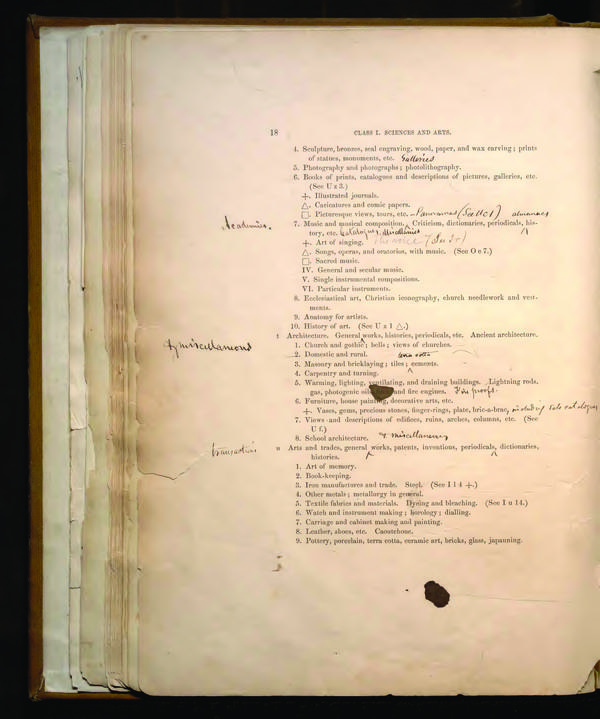 18 CLASS I. SCIENCES AND ARTS.
4. Sculpture, bronzes, seal engraving, wood, paper, and wax carving; prints
of statues, monuments, etc. Galleries
5. Photography and photographs; photolithography.
6. Books of prints, catalogues and descriptions of pictures, galleries, etc.
(See U x 3.)
+. Illustrated journals.
△. Caricatures and comic papers.
□. Picturesque views, tours, etc. Panoramas almanacs
Academies.
7. Music and musical composition. Criticism, dictionaries, periodicals, his-
tory, etc. Catalogues, Miscellanies
+. Art of singing. the voice
△. Songs, operas, and oratorios, with music. (See O e 7.)
□. Sacred music.
IV. General and secular music.
V. Single instrumental compositions.
VI. Particular instruments.
8. Ecclesiastical art, Christian iconography, church needlework and vest-
ments.
9. Anatomy for artists.
10. History of art. (See U x 1 △.)
t Architecture. General works, histories, periodicals, etc. Ancient architecture.
& miscellaneous
1. Church and gothic; bells; views of churches.
2. Domestic and rural. terra cotta
3. Masonry and bricklaying; tiles; cements.
4. Carpentry and turning.
5. Warming, lighting, ventilating, and draining buildings. Lightning rods,
gas, photogenic and fire engines. Fire proofs.
6. Furniture, house painting, decorative arts, etc.
+. Vases, gems, precious stones, finger-rings, plate, bric-a-brac, including sale catalogues
7. Views and descriptions of edifices, ruins, arches, columns, etc. (See
U f.)
8. School architecture. & miscellaneous
transactions
u Arts and trades, general works, patents, inventions, periodicals, dictionaries,
histories.
1. Art of memory.
2. Book-keeping.
3. Iron manufactures and trade. Steel. (See I l 4 +.)
4. Other metals; metallurgy in general.
5. Textile fabrics and materials. Dyeing and bleaching. (See I u 14.)
6. Watch and instrument making; horology; dialling.
7. Carriage and cabinet making and painting.
8. Leather, shoes, etc. Caoutchouc.
9. Pottery, porcelain, terra cotta, ceramic art, bricks, glass, japanning.